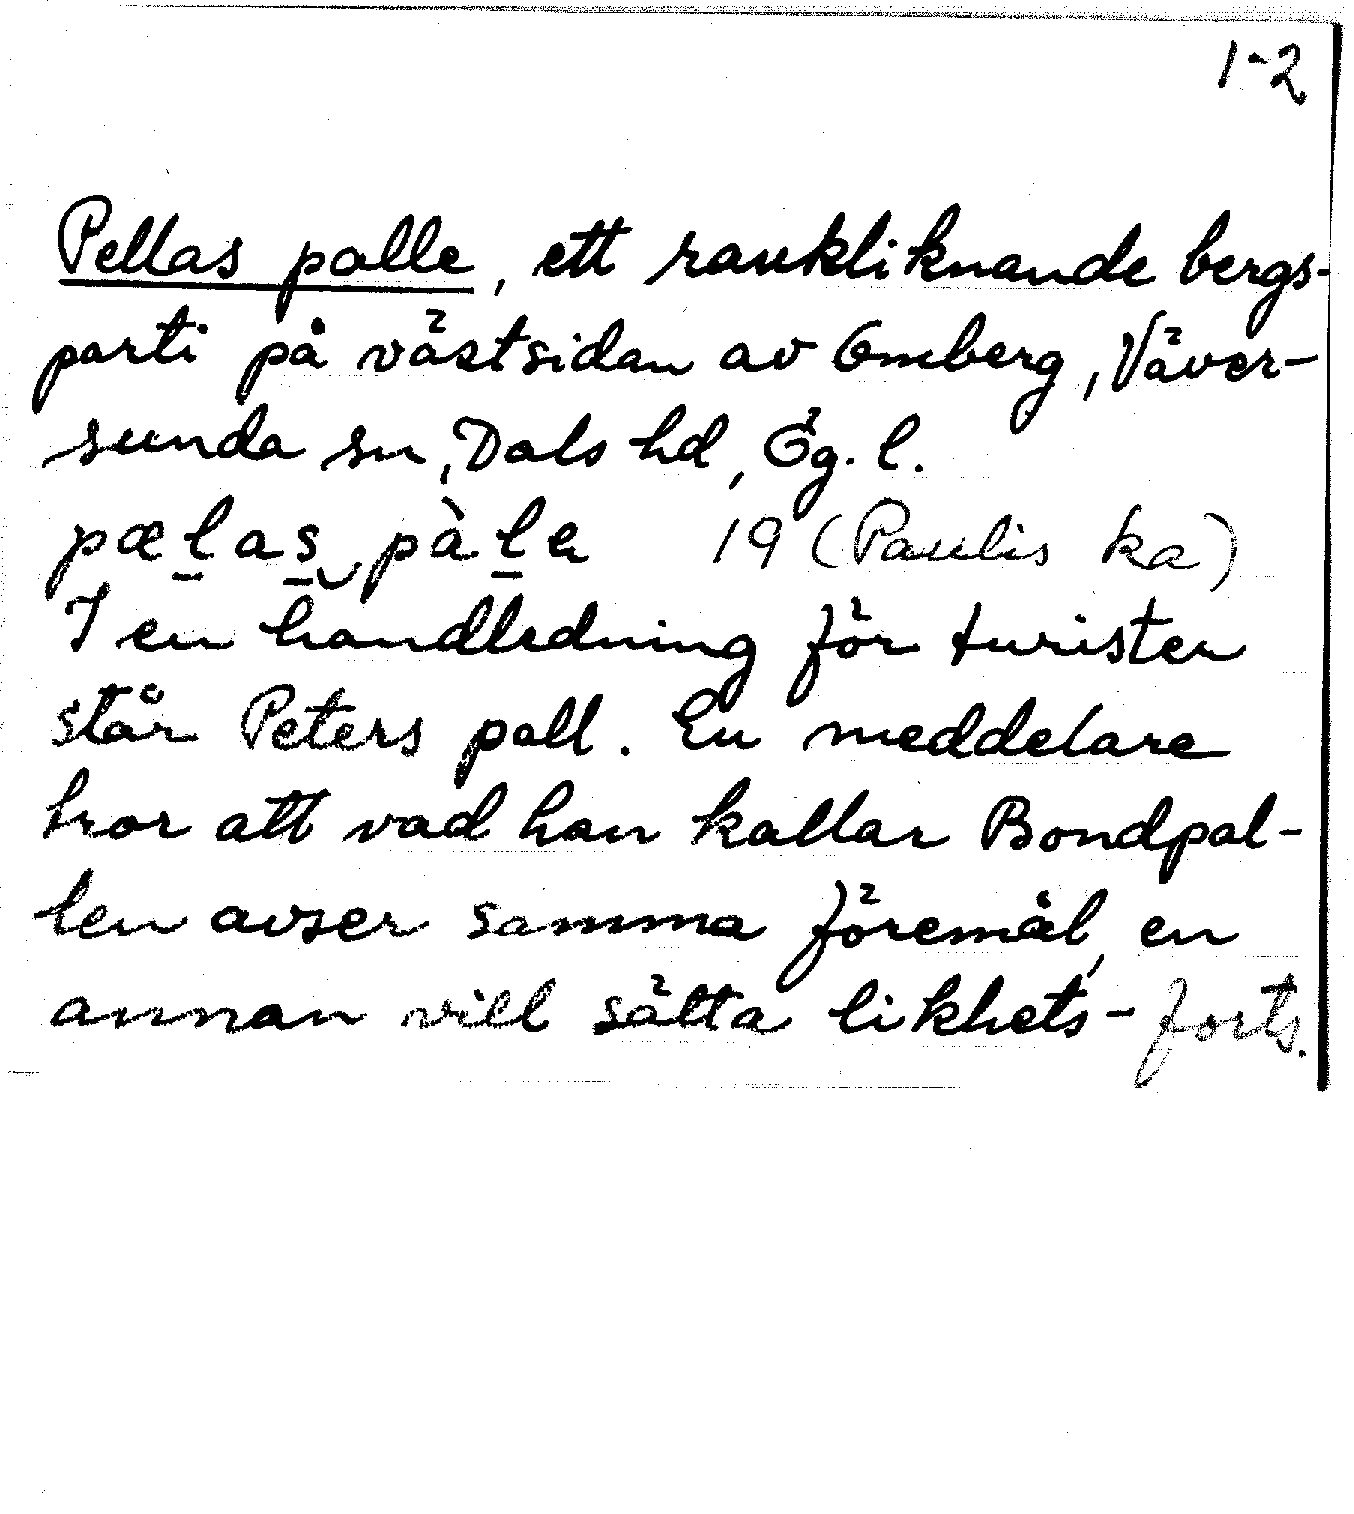 1-2
Pellas palle, ett raukliknande bergs-
parti på västsidan av Omberg, Väver-
sunda sn, Dals hd, Ög. l.
pæl̠as̠‿pàl̠e 19 (Paulis ka)
I en handledning för turister
står Peters pall. En meddelare
tror att vad han kallar Bondpal-
len avser samma föremål, en
annan vill sätta likhets- forts.